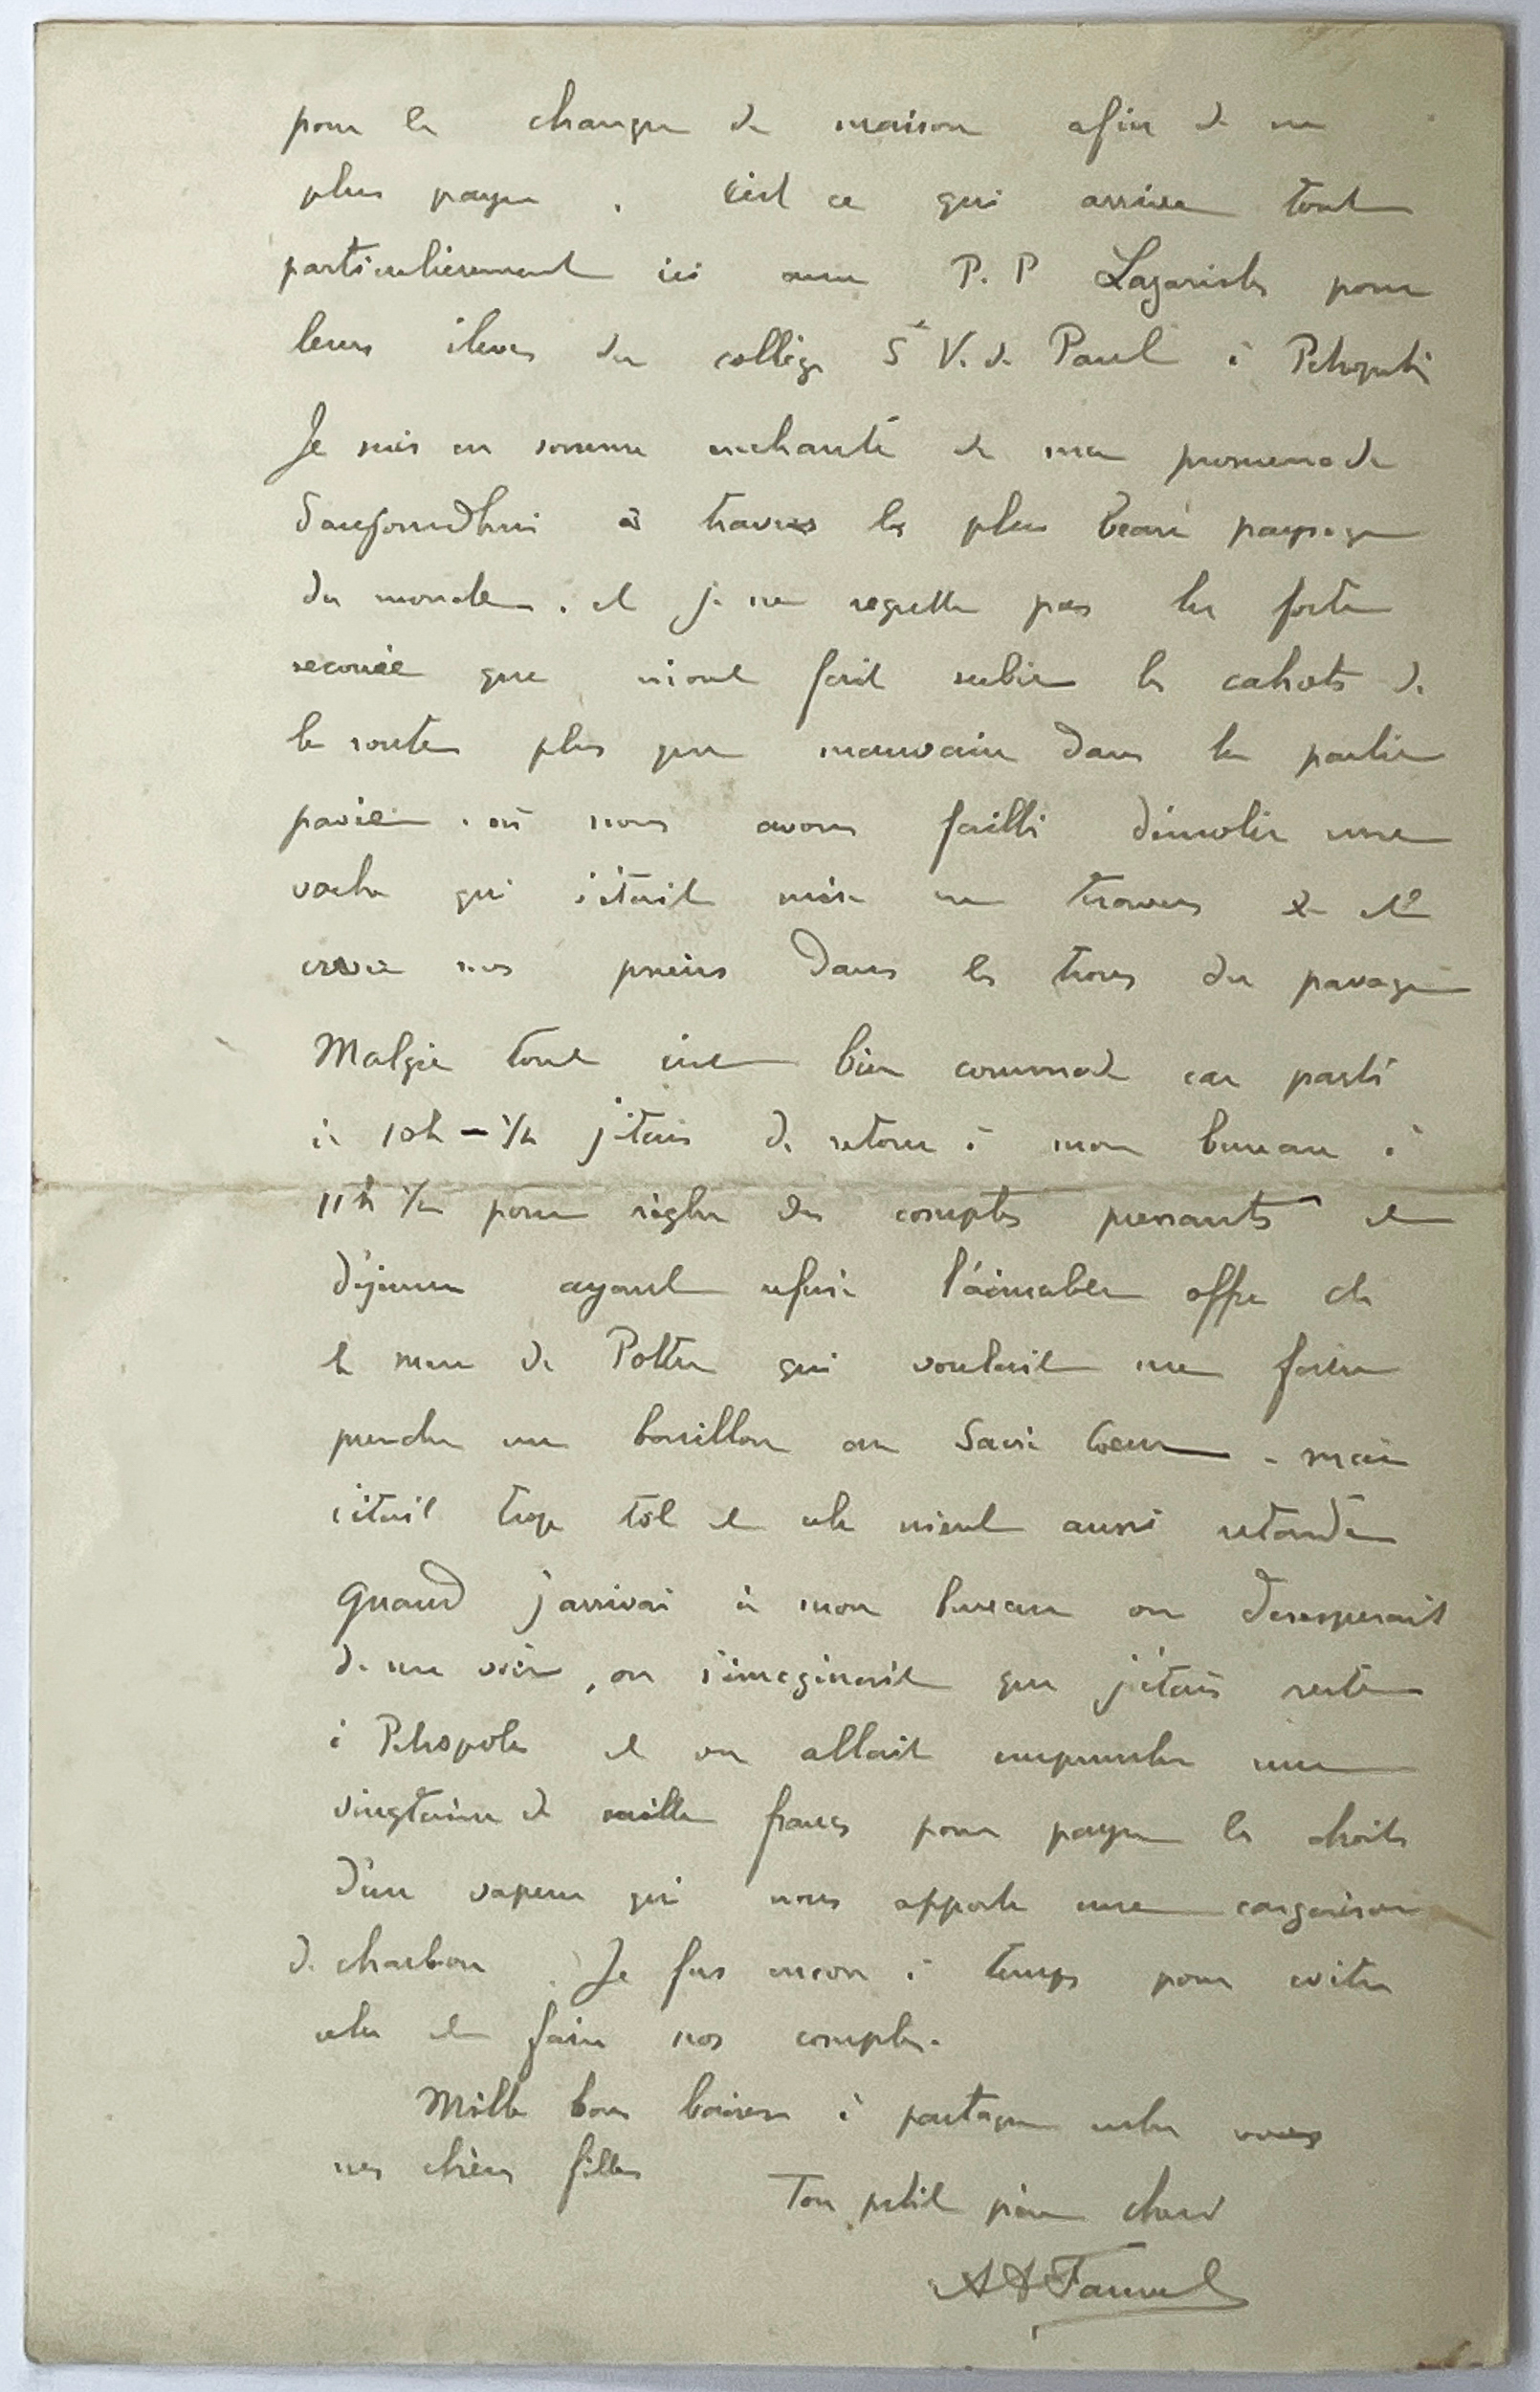 pour les changer de maison afin de ne
plus payer . C'est ce qui arrive tout
particulierement ici aux P. P Lazaristes pour
leurs élèves du collège St V. de Paul à Petropolis
Je suis en somme enchanté de ma promenade
d'aujourd'hui à travers les plus beaux paysages
du monde . et je ne regrette pas les fortes
secouées que m'ont fait subir les cahots de
la route plus que mauvaise dans la partie
pavée . où nous avons failli démolir une
vache qui s'était mise en travers & et
crever nos pneus dans les trous du pavage
Malgré tout c'est bien commode car parti
à 10h - 1/2 j'étais de retour à mon bureau à
11h 1/2 pour régler des comptes pressants et
déjeuner ayant refusé l'aimable offre de
la mère de Potter qui voulait me faire
prendre un bouillon au Sacré Coeur - mais
c'était trop tôt et cela m'eut aussi retardé
Quand j'arrivai à mon bureau on desesperait
de me voir , on s'imaginait que j'étais resté
à Petropolis et on allait emprunter une
vingtaine de mille francs pour payer les droits
d'un vapeur qui nous apporte une cargaison
de charbon . Je fus encore à temps pour eviter
cela et faire nos comptes.
Mille bons baisers à partager entre vous
mes chères filles
Ton petit père cheri